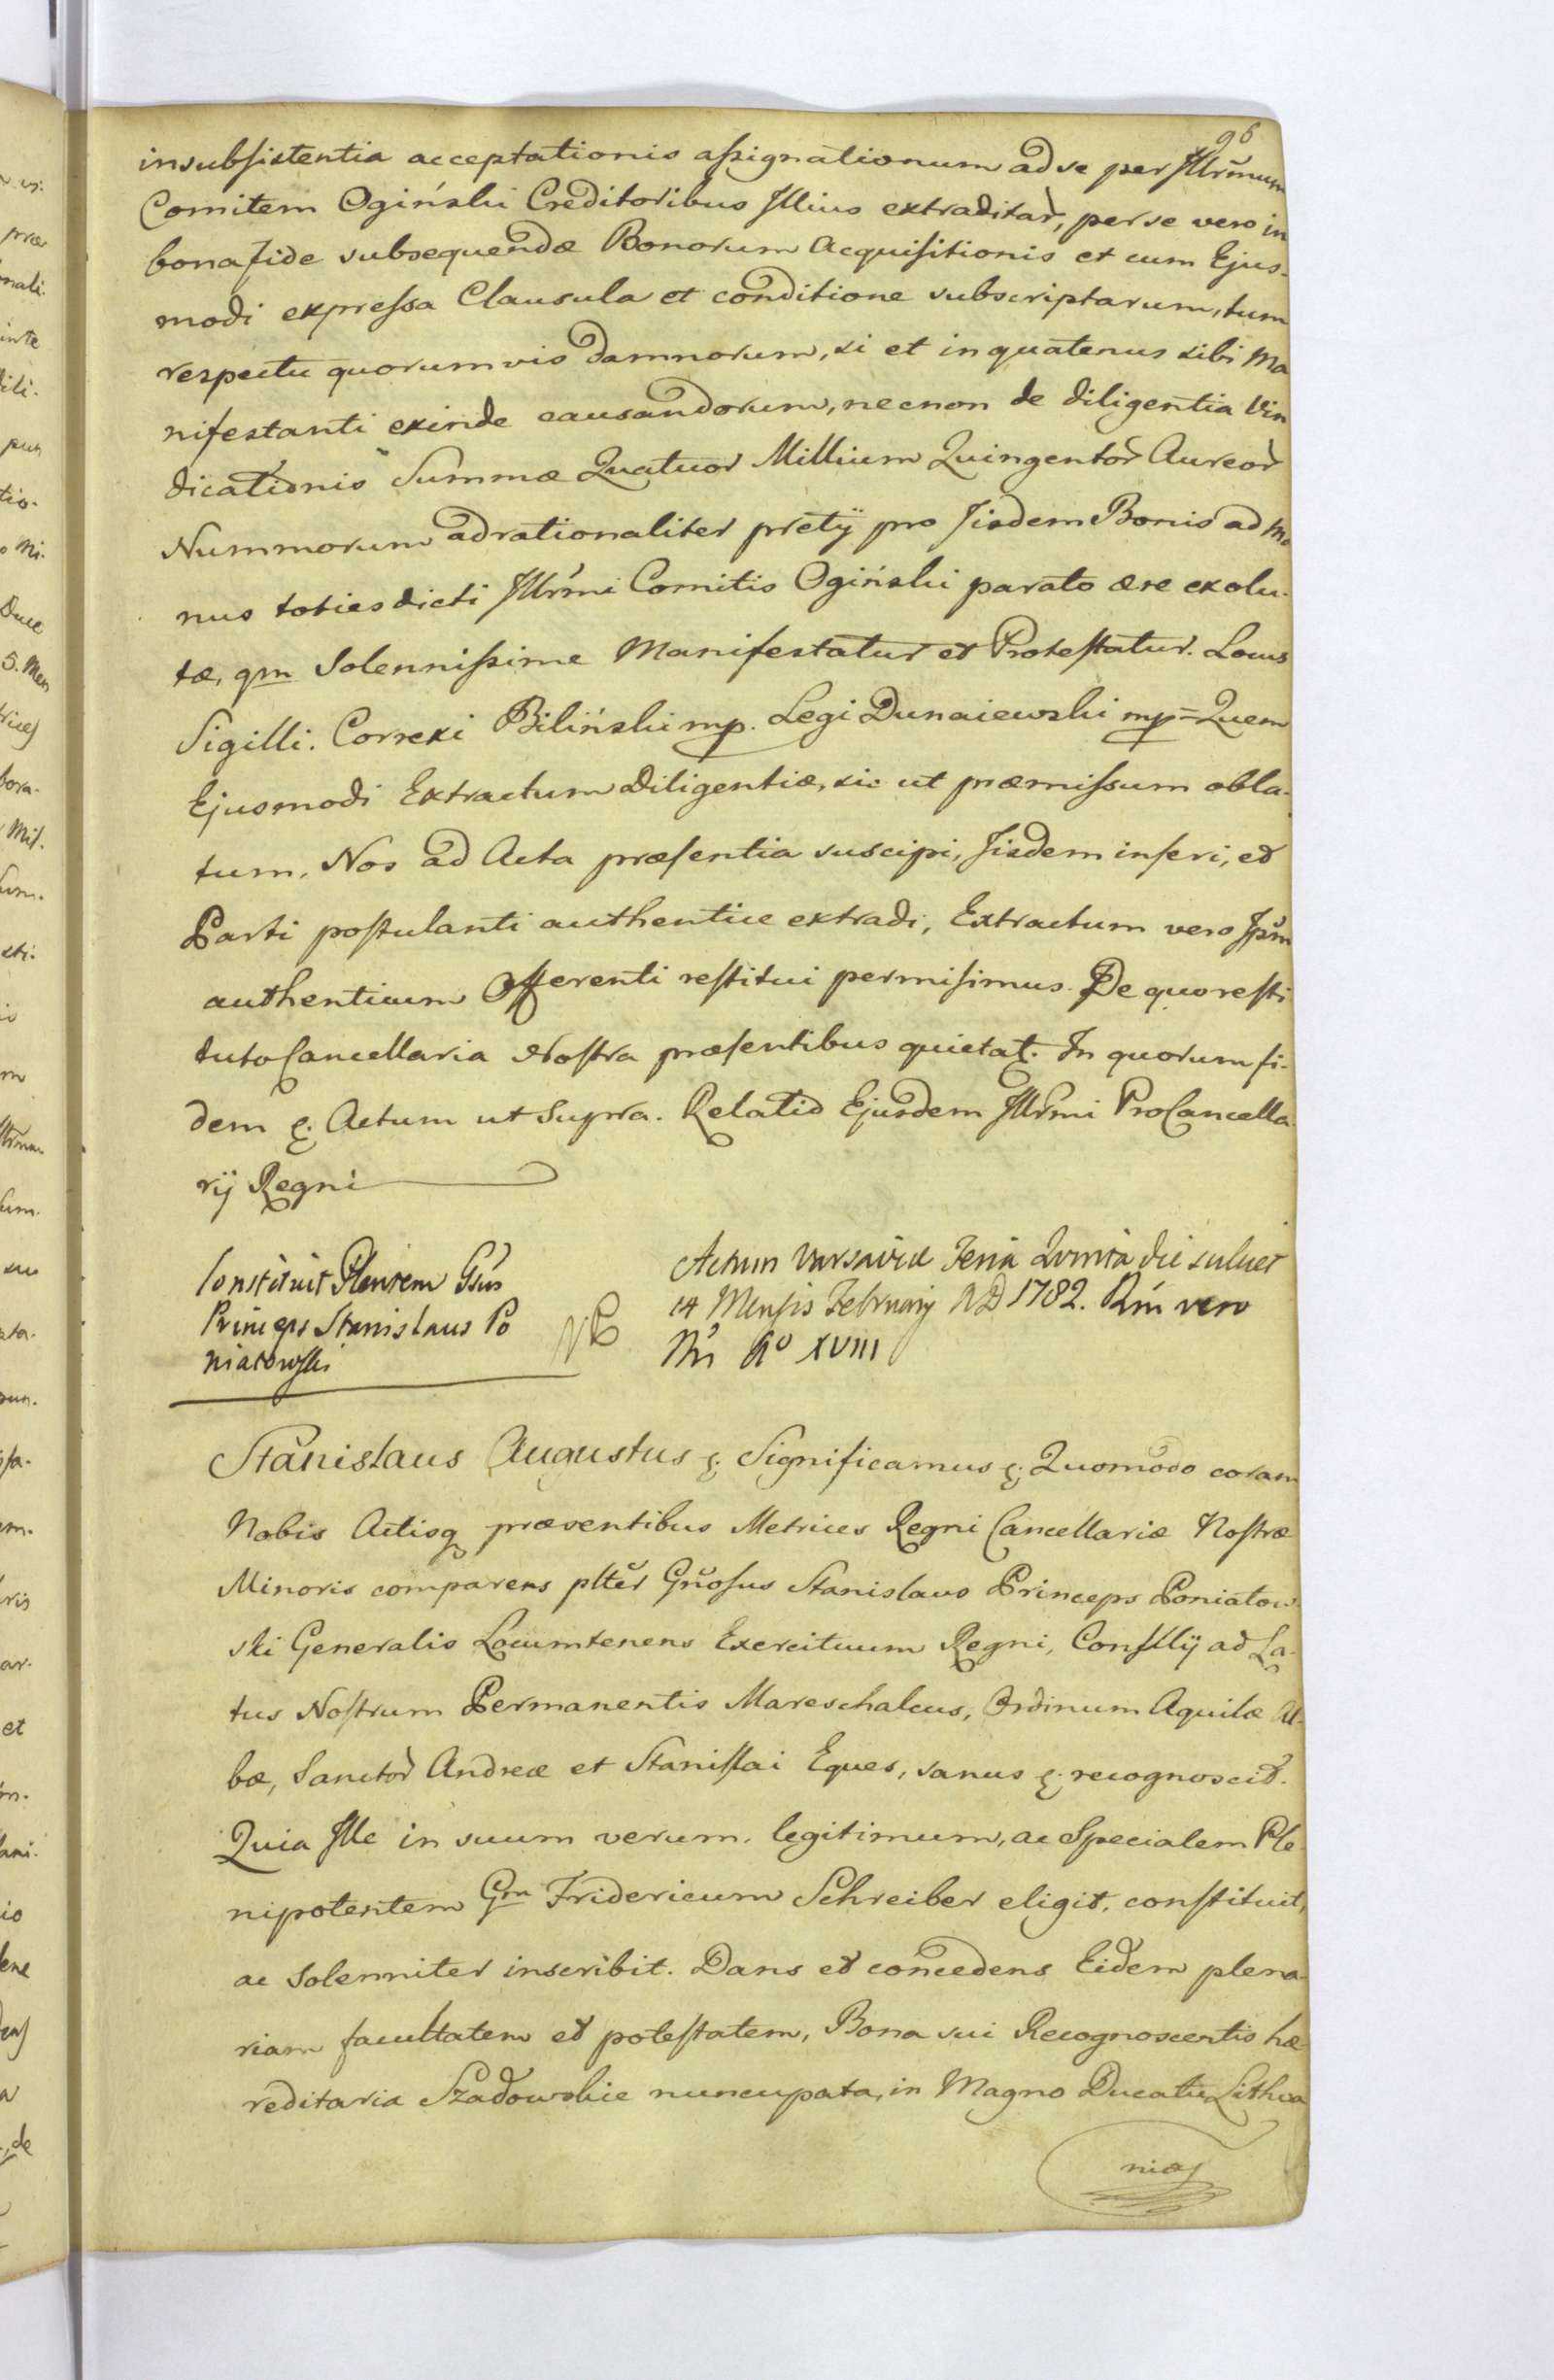 96
insubsistentia acceptationis assignationum ad se per Illrmum
Comitem Ogiński Creditoribus Illius extraditar, per se vero in
bona fide subsequendæ Bonorum Acquisitionis et cum Ejus-
modi expressa Clausula et conditione subscriptarum, tum
respectu quorumvis damnorum, si et in quatenus sibi Ma
nifestanti exinde causandorum, necnon de diligentia Vin
dicationis Summæ Quatuor Millium Quingentor Aureor
Nummorum ad rationaliter pretij pro Iisdem Bonis ad Ma
nus toties dicti Illrmi Comitis Ogiński parato ære exolu-
tæ, qm Solennissime Manifestatur et Protestatur. Locus
Sigilli. Correxi Biliński mp. Legi Dunaiewski mp = Quem
Ejusmodi Extractum Diligentiæ, sic ut præmissum obla-
tum, Nos ad Acta præsentia suscipi, Iisdem inseri, et
Parti postulanti authentice extradi, Extractum vero Ipsm
authenticum Offerenti restitui permisimus. De quo resti
tuto Cancellaria Nostra præsentibus quietat. In quorum fi-
dem &. Actum ut Supra. Relatio Ejusdem Illrmi ProCancella
rij Regni
Constituit Plentem Gsus
Princeps Stanislaus Po
niatowski
Actum Varsaviæ Feria Quinta die scilicet
14 Mensis Februarij AD 1782. Rni vero
Nri Ao XVIII
Stanislaus Augustus &. Significamus &. Quomodo coram
Nobis Actisq præsentibus Metrices Regni Cancellariæ Nostræ
Minoris comparens plter Gnosus Stanislaus Princeps Poniatow
ski Generalis Locumtenens Exercituum Regni, Consilij ad La-
tus Nostrum Permanentis Mareschalcus, Ordinum Aquilæ Al-
bæ, Sanctor Andreæ et Stanislai Eques, sanus &. recognoscit.
Quia Ille in suum verum, legitimum, ac Specialem Ple
nipotentem Gm Fridericum Schreiber eligit, constituit,
ac Solenniter inscribit. Dans et concedens Eidem plena-
riam facultatem et potestatem, Bona sui Recognoscentis hæ
reditaria Szadowskie nuncupata, in Magno Ducatu Lithva
niæ